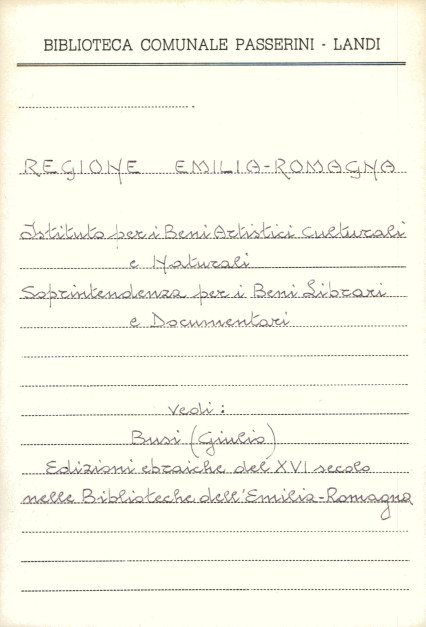 BIBLIOTECA COMUNALE PASSERINI - LANDI
REGIONE EMILIA-ROMAGNA
Istituto per i Beni Artistici Culturali
e Naturali
Soprintendenza per i Beni Librari
e Documentari
vedi:
Busi (Giulio)
Edizioni ebraiche del XVI secolo
nelle Biblioteche dell'Emilia-Romagna